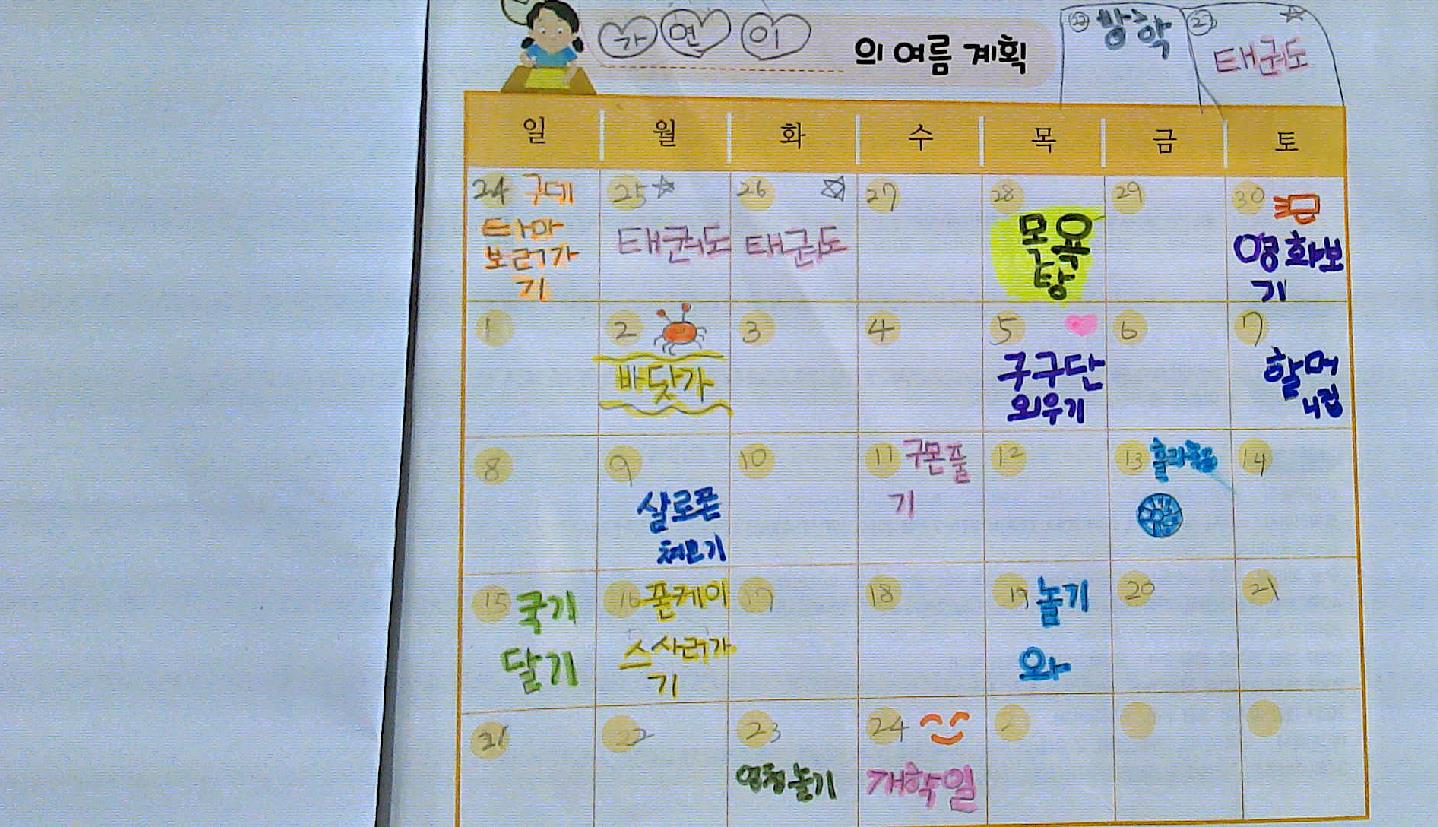 가연이 의 여름 계획
22 방학 23 태궈도
일 월 화 수 목 금 토
24 구데
타마
보러가
기
25 태궈도
26 태궈도
27
28 목욕
탕
29
30 영화보
기
1
2 바닷가
3
4
5 구구단
외우기
6
7 할머
니집
8
9 살로폰
쳐보기
10
11 구몬풀
기
12
13 훌라후프
14
15 국기
달기
16 폰케이
스사러가
기
17
18
19 놀기
와
20
21
21
22
23 엄청놀기
24 개학일
2